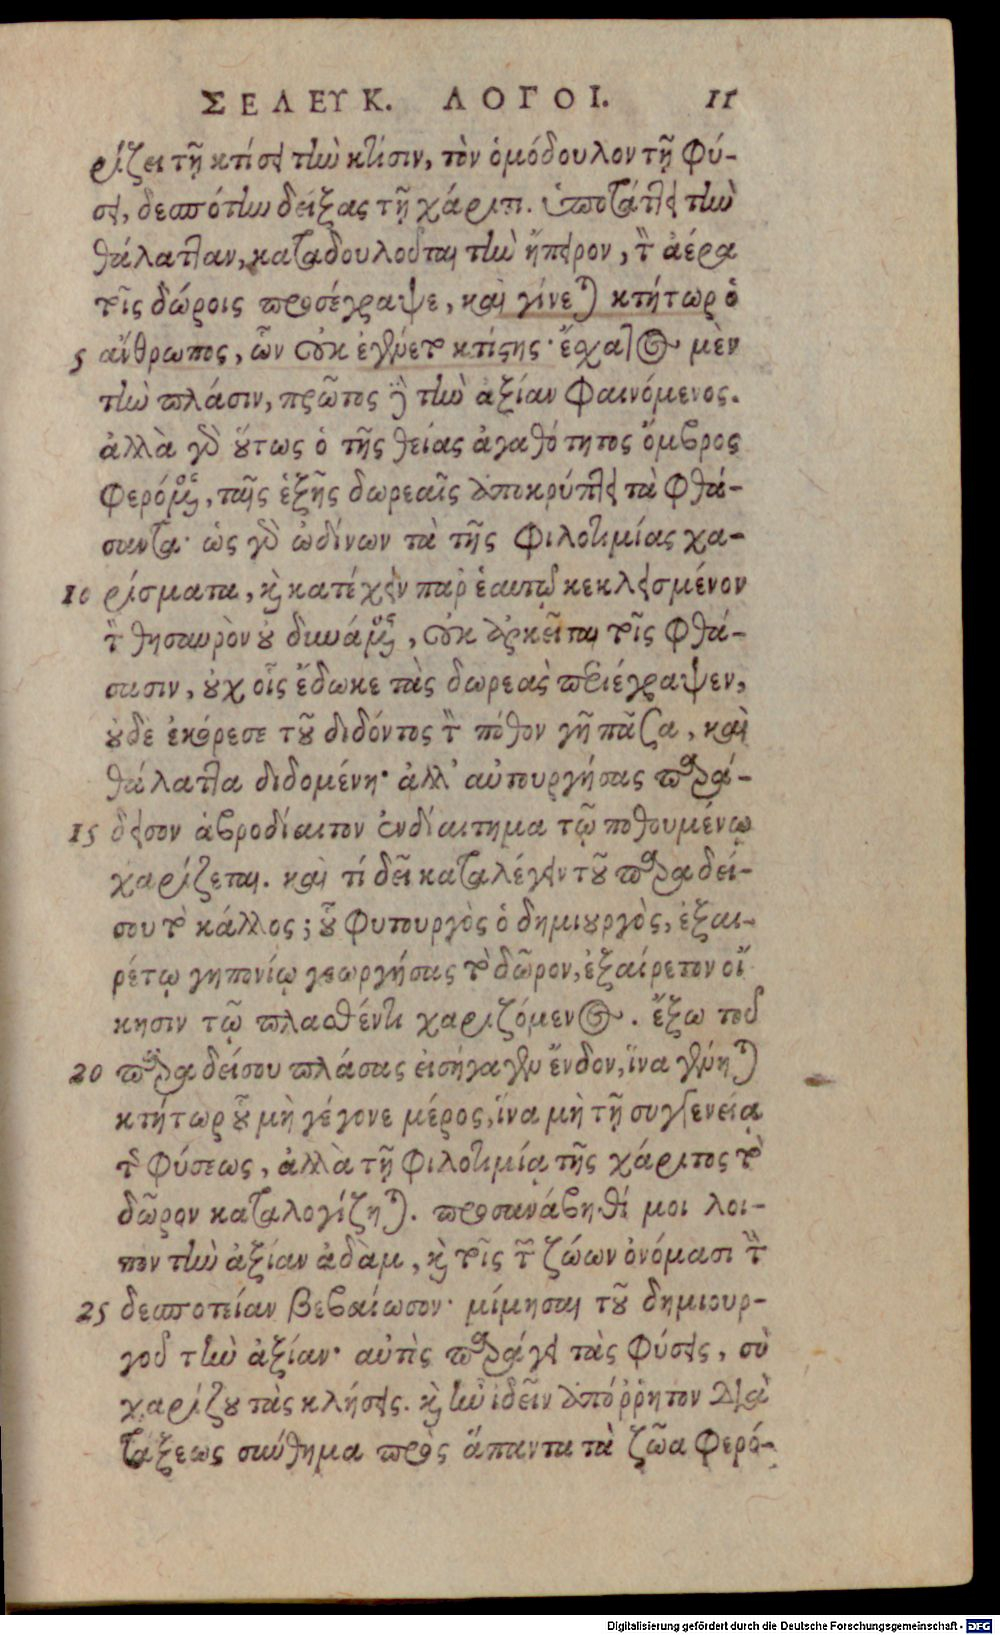 ΣΕΛΕΥΚ. ΛΟΓΟΙ. 11
ρίζει τῇ κτίσει τὴν κτίσιν, τὸν ὁμόδουλον τῇ φύ-
σει, δεσπότην δείξας τῇ χάριτι. ὑποτάττει τὴν
θάλατταν, καταδουλοῦται τὴν ἤπειρον, τὸν ἀέρα
τοῖς δώροις προσέγραψε, καὶ γίνεται κτήτωρ ὁ
5 ἄνθρωπος, ὧν οὐκ ἐγένετο κτίστης· ἔσχατος μὲν
τὴν πλάσιν, πρῶτος δὲ τὴν ἀξίαν φαινόμενος.
ἀλλὰ γὰρ οὕτως ὁ τῆς θείας ἀγαθότητος ὄμβρος
φερόμενος, ταῖς ἑξῆς δωρεαῖς ἀποκρύπτει τὰ φθά-
σαντα· ὡς γὰρ ὠδίνων τὰ τῆς φιλοτιμίας χα-
10 ρίσματα, καὶ κατέχειν παρ' ἑαυτῷ κεκλεισμένον
τὸν θησαυρὸν οὐ δυνάμενος, οὐκ ἀρκεῖται τοῖς φθά-
σασιν, οὐχ οἷς ἔδωκε τὰς δωρεὰς περιέγραψεν,
οὐδὲ ἐκόρεσε τοῦ διδόντος τὸν πόθον γῆ πᾶσα, καὶ
θάλαττα διδομένη· ἀλλ' αὐτουργήσας παρά-
15 δεισον ἁβροδίαιτον ἐνδίαιτημα τῷ ποθουμένῳ
χαρίζεται. καὶ τί δεῖ καταλέγειν τοῦ παραδεί-
σου τὸ κάλλος; οὗ φυτουργὸς ὁ δημιουργὸς, ἐξαι-
ρέτῳ γηπονίῳ γεωργήσας τὸ δῶρον, ἐξαίρετον οἴ
κησιν τῷ πλασθέντι χαριζόμενος. ἔξω τοῦ
20 παραδείσου πλάσας εἰσήγαγεν ἔνδον, ἵνα γένηται
κτήτωρ οὗ μὴ γέγονε μέρος, ἵνα μὴ τῇ συγγενείᾳ
τῆς φύσεως, ἀλλὰ τῇ φιλοτιμίᾳ τῆς χάριτος τὸ
δῶρον καταλογίζηται. προσανάβηθί μοι λοι-
πὸν τὴν ἀξίαν ἀδὰμ, καὶ τοῖς τῶν ζώων ὀνόμασι τὴν
25 δεσποτείαν βεβαίωσον· μίμησαι τοῦ δημιουρ-
γοῦ τὴν ἀξίαν· αὐτὸς παράγει τὰς φύσεις, σὺ
χαρίζου τὰς κλήσεις. καὶ ἦν ἰδεῖν ἀπόῤῥητον διὰ
τάξεως σύνθημα πρὸς ἅπαντα τὰ ζῶα φερό-
Digitalisierung gefördert durch die Deutsche Forschungsgemeinschaft - DFG